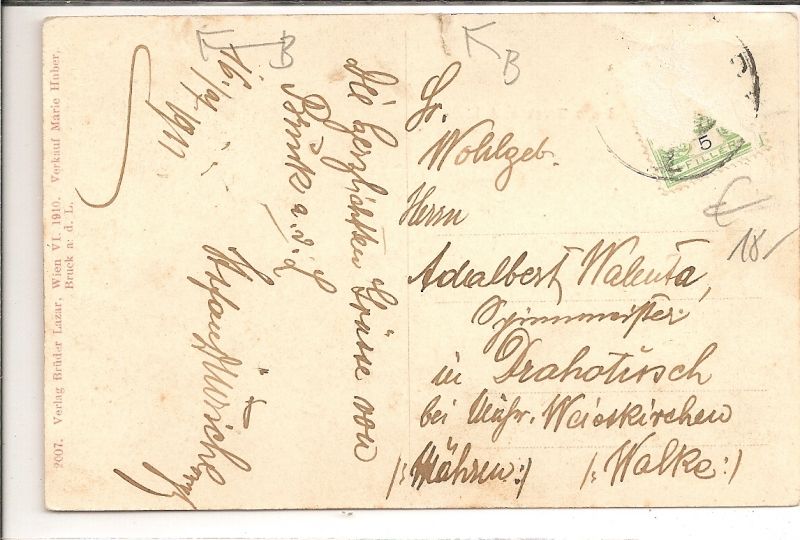 2007. Verlag Brüder Lazar, Wien VI. 1910. Verkauf Marie Huber,
Bruck a. d. L.
1911
Die herzlichsten Grüsse von
Bruck a. d. L
K B
K B
5
FILLER
€
18
Sr.
Wohlgeb.
Herrn
Adalbert Walenta,
Spinnmeister
in Drahotusch
bei Mähr. Weisskirchen
/: Mähren :/ /: Walke :/